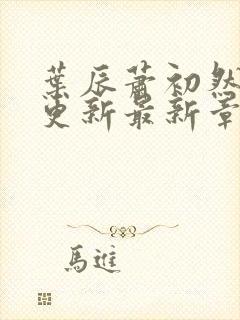 葉辰蕭初然
更新最新章
馬進